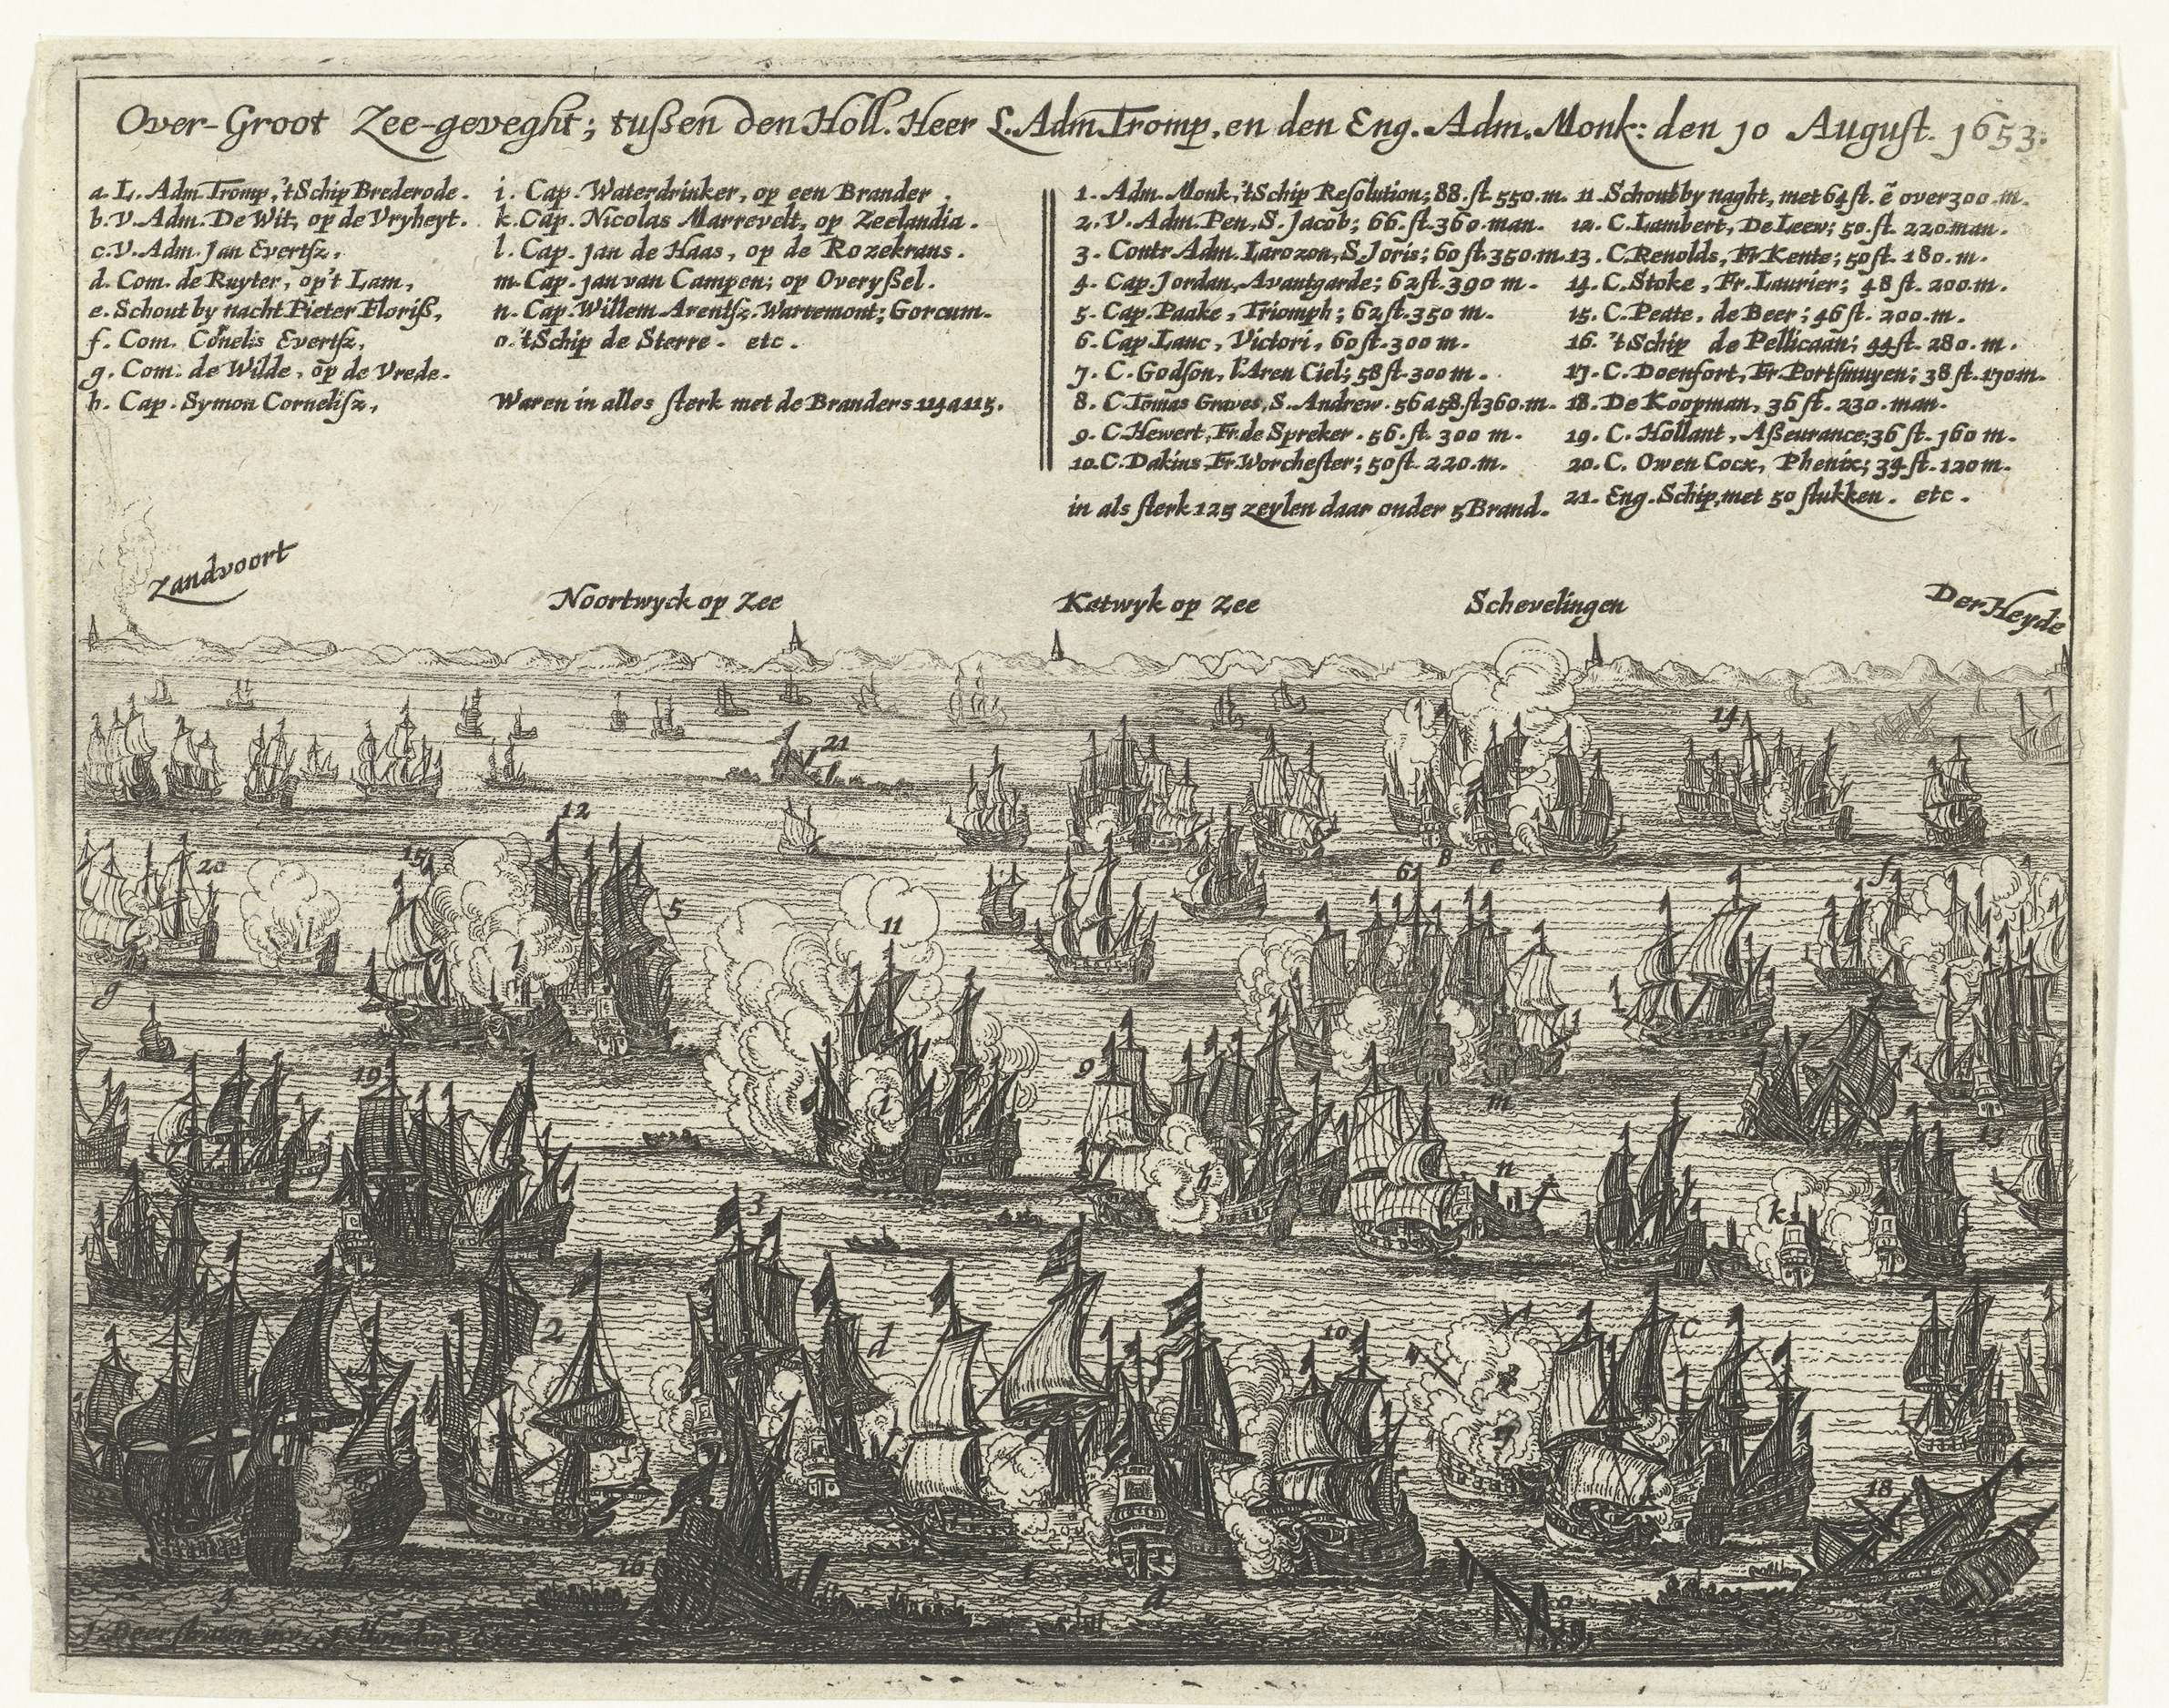 Over-Groot Zee-geveght; tußen den Holl. Heer L. Adm Tromp, en den Eng. Adm. Monk: den 10 August. 1653.
a. L. Adm Tromp, 't Schip Brederode.
b. V. Adm. De Wit, op de Vryheyt.
c. V. Adm. Jan Evertsz,
d. Com. de Ruyter, op't Lam,
e. Schout by nacht Pieter Floriß,
f. Com. Cornelis Evertsz,
g. Com: de Wilde, op de Vrede.
h. Cap. Symon Cornelisz,
i. Cap. Waterdrinker, op een Brander.
k. Cap. Nicolas Marrevelt, op Zeelandia.
l. Cap. jan de Haas, op de Rozekrans.
m. Cap. jan van Campen; op Overyßel.
n. Cap. Willem Arentsz. Warremont; Gorcum.
o. 't Schip de Sterre. etc.
Waren in alles sterk met de Branders 114 a 115.
1. Adm. Monk, 't Schip Resolution; 88. st. 550. m.
2. V. Adm. Pen, S. Jacob; 66. st. 360. man.
3. Contr Adm. Larozon, S. Joris; 60 st. 350. m.
4. Cap. Jordan, Avantgarde; 62 st. 390 m.
5. Cap. Paake, Triomph; 62 st. 350 m.
6. Cap. Lanc, Victori, 60 st. 300 m.
7. C. Godson, l'Aren Ciel; 58 st. 300 m.
8. C. Tomas Graves, S. Andrew. 56 a 58. st 360. m.
9. C. Hewert, Fr. de Spreker. 56. st. 300 m.
10. C. Dakins, Fr. Worchester; 50 st. 220. m.
in als sterk 125 zeylen daar onder 5 Brand.
11. Schout by naght, met 64 st. ẽ over 300. m.
12. C. Lambert, De Leew; 50. st. 220 man.
13. C. Renolds, Fr. Kente; 50 st. 180. m.
14. C. Stoke, Fr. Laurier; 48 st. 200. m.
15. C. Peate, de Beer; 46 st. 200. m.
16. 't Schip de Pellicaan; 44 st. 280. m.
17. C. Doenfort, Fr. Portsmuyen; 38 st. 170 m.
18. De Koopman, 36 st. 230. man.
19. C. Hollant, Aßeurance; 36 st. 160 m.
20. C. Owen Cocx, Phenix; 34 st. 120 m.
21. Eng. Schip, met 50 stukken. etc.
Zandvoort
Noortwyck op Zee
Katwyk op Zee
Schevelingen
Der Heyde
14
21
12
20
15
8
e
6
f
5
l
11
g
19
i
9
m
13
h
n
k
3
2
d
10
C
7
18
16
a